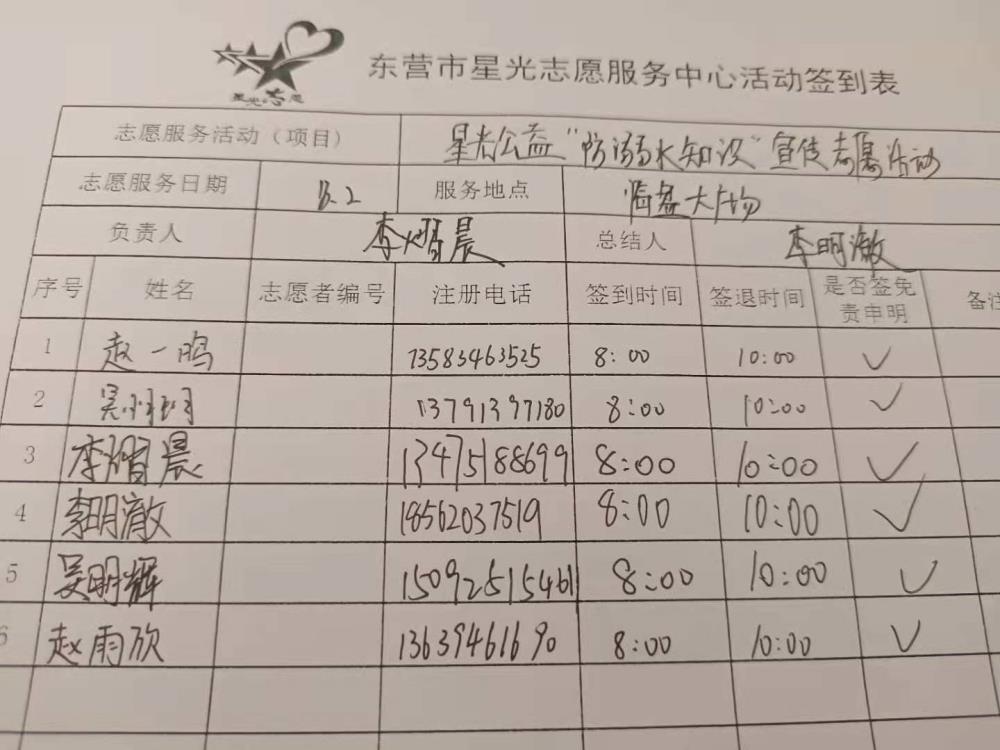 星光志愿
东营市星光志愿服务中心活动签到表
志愿服务活动（项目） 星光公益“防溺水知识”宣传志愿活动
志愿服务日期 8.2 服务地点 临盘大广场
负责人 李熠晨 总结人 李明澈
序号 姓名 志愿者编号 注册电话 签到时间 签退时间 是否签免责申明 备注
1 赵一鸣 13583463525 8:00 10:00 ✓
2 吴 13791397180 8:00 10:00 ✓
3 李熠晨 13475188699 8:00 10:00 ✓
4 李明澈 18562037519 8:00 10:00 ✓
5 吴明辉 15092515461 8:00 10:00 ✓
6 赵雨欣 13639461690 8:00 10:00 ✓